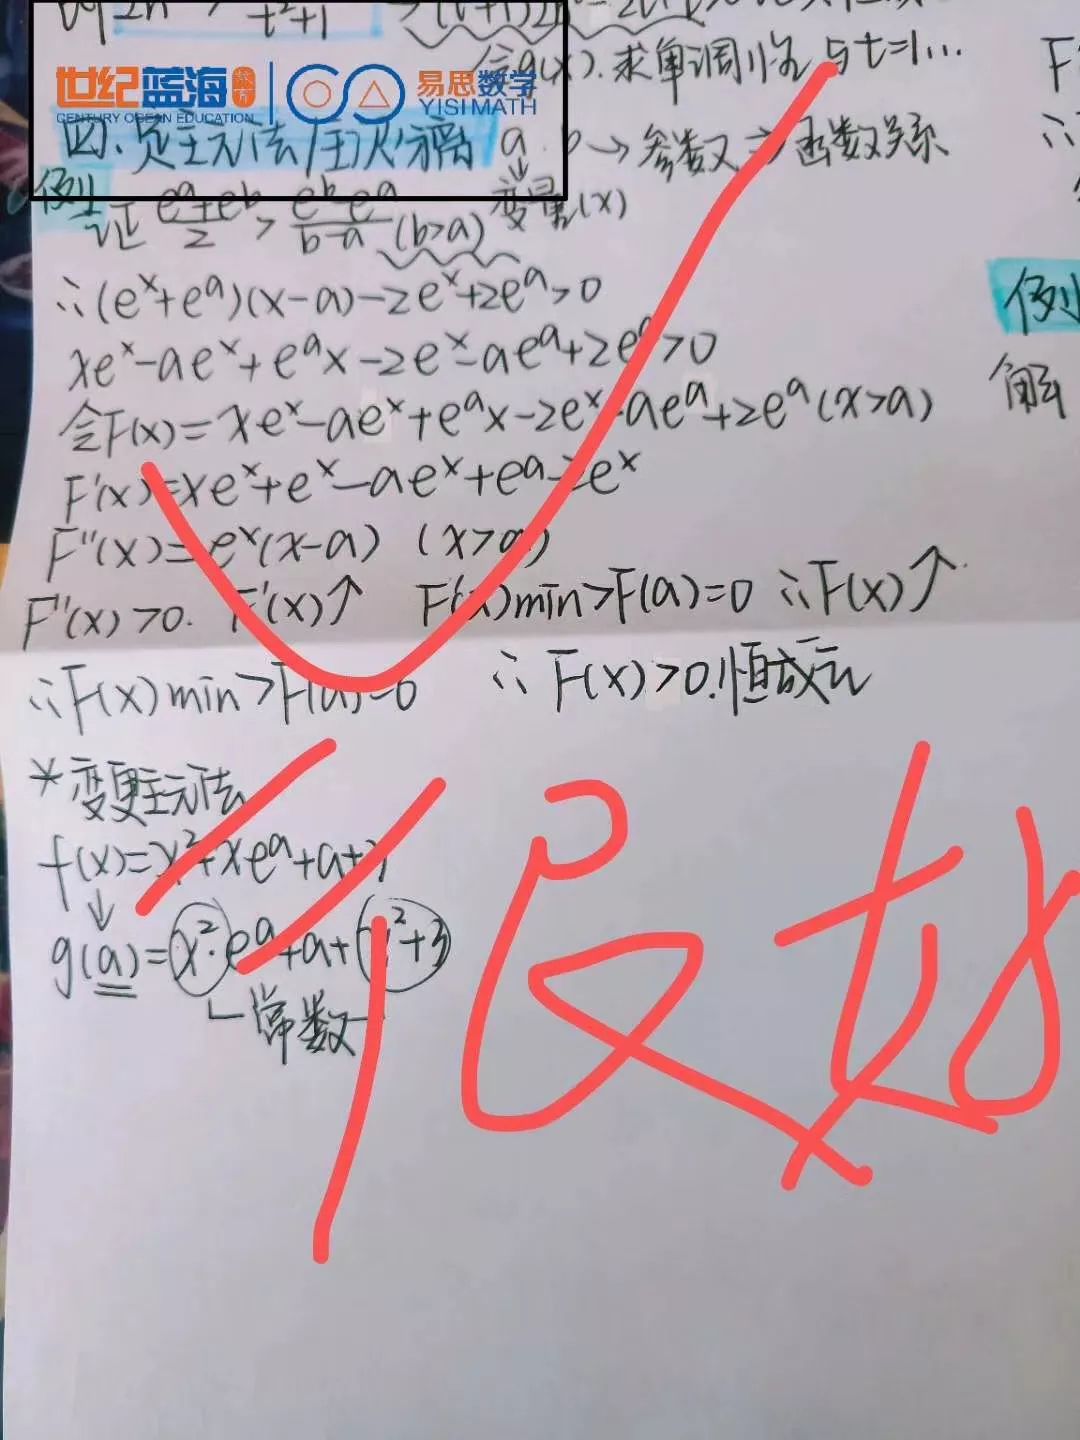 t²+1
令g(x).求单调性 与t=1...
世纪蓝海 教育 易思数学
CENTURY OCEAN EDUCATION YISI MATH
四、定主元法/主次分离 a b→参数⇒函数关系
例1 证 (e^a+e^b)/2 > (e^b-e^a)/(b-a) (b>a) 变量(x)
∴(e^x+e^a)(x-a)-2e^x+2e^a>0
xe^x-ae^x+e^ax-2e^x-ae^a+2e^a>0
令F(x)=xe^x-ae^x+e^ax-2e^x-ae^a+2e^a(x>a)
F'(x)=xe^x+e^x-ae^x+e^a-2e^x
F''(x)=e^x(x-a) (x>a)
F''(x)>0. F'(x)↑ F'(x)min>F(a)=0 ∴F(x)↑
∴F(x)min>F(a)=0 ∴F(x)>0.恒成立
*变更主元法
f(x)=x²+xe^a+a+3
↓
g(a)=x²·e^a+a+x²+3
常数
很好
例
解